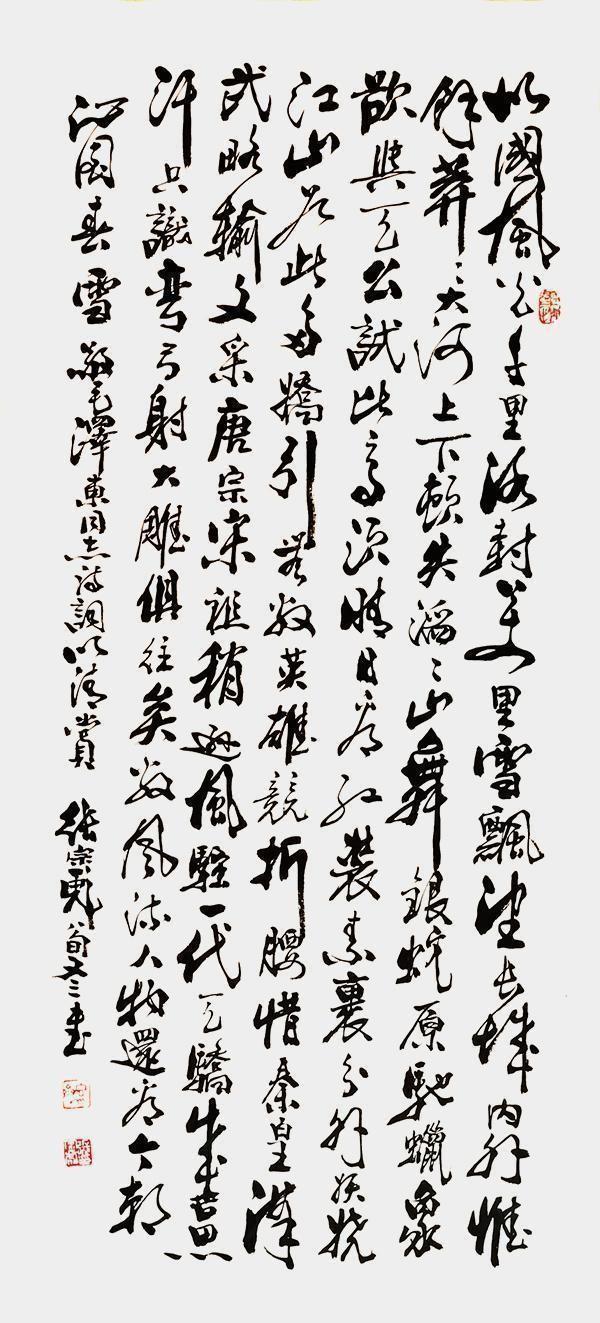 北國風光千里冰封萬里雪飄望长城内外惟
餘莽〻大河上下頓失滔〻山舞銀蛇原馳蠟象
欲與天公試比高須晴日看红裝素裹分外妖娆
江山如此多嬌引無數英雄競折腰惜秦皇漢
武略輸文采唐宗宋祖稍遜風騷一代天驕成吉思
汗只識彎弓射大雕俱往矣數風流人物還看今朝
沁园春雪 毛澤東同志诗詞以清賞 張宗 旬又三書